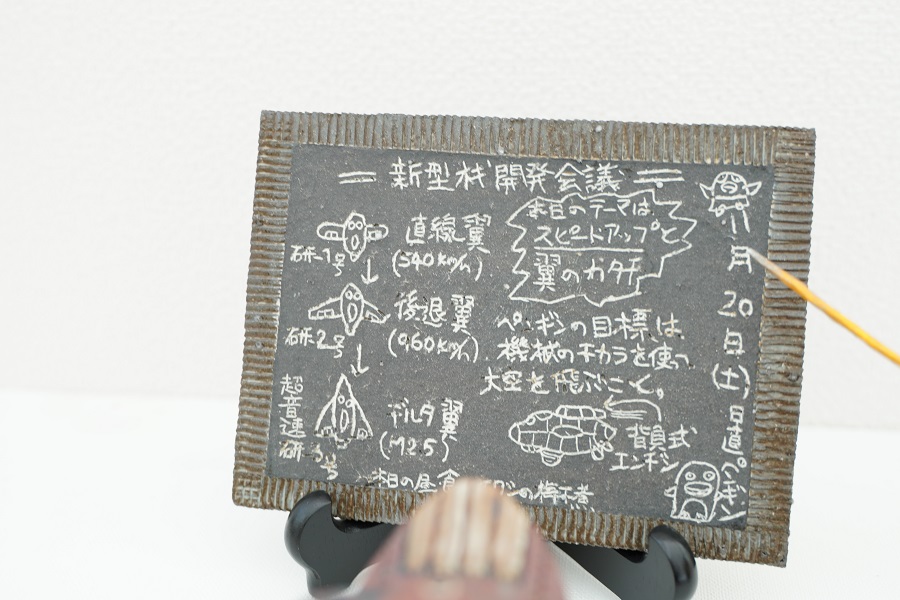 = 新型機開発会議 =
本日のテーマは、
スピードアップと
翼のカタチ
研-1号
直線翼
(540km/h)
研-2号
後退翼
(0,60km/h)
超音速
研-3号
デルタ翼
(M2.5)
ペンギンの目標は
機械のチカラを使って
大空を飛ぶこと。
背負式
エンジン
本日の昼食
ンの梅干煮
11月20日(土)
日直。ペンギン